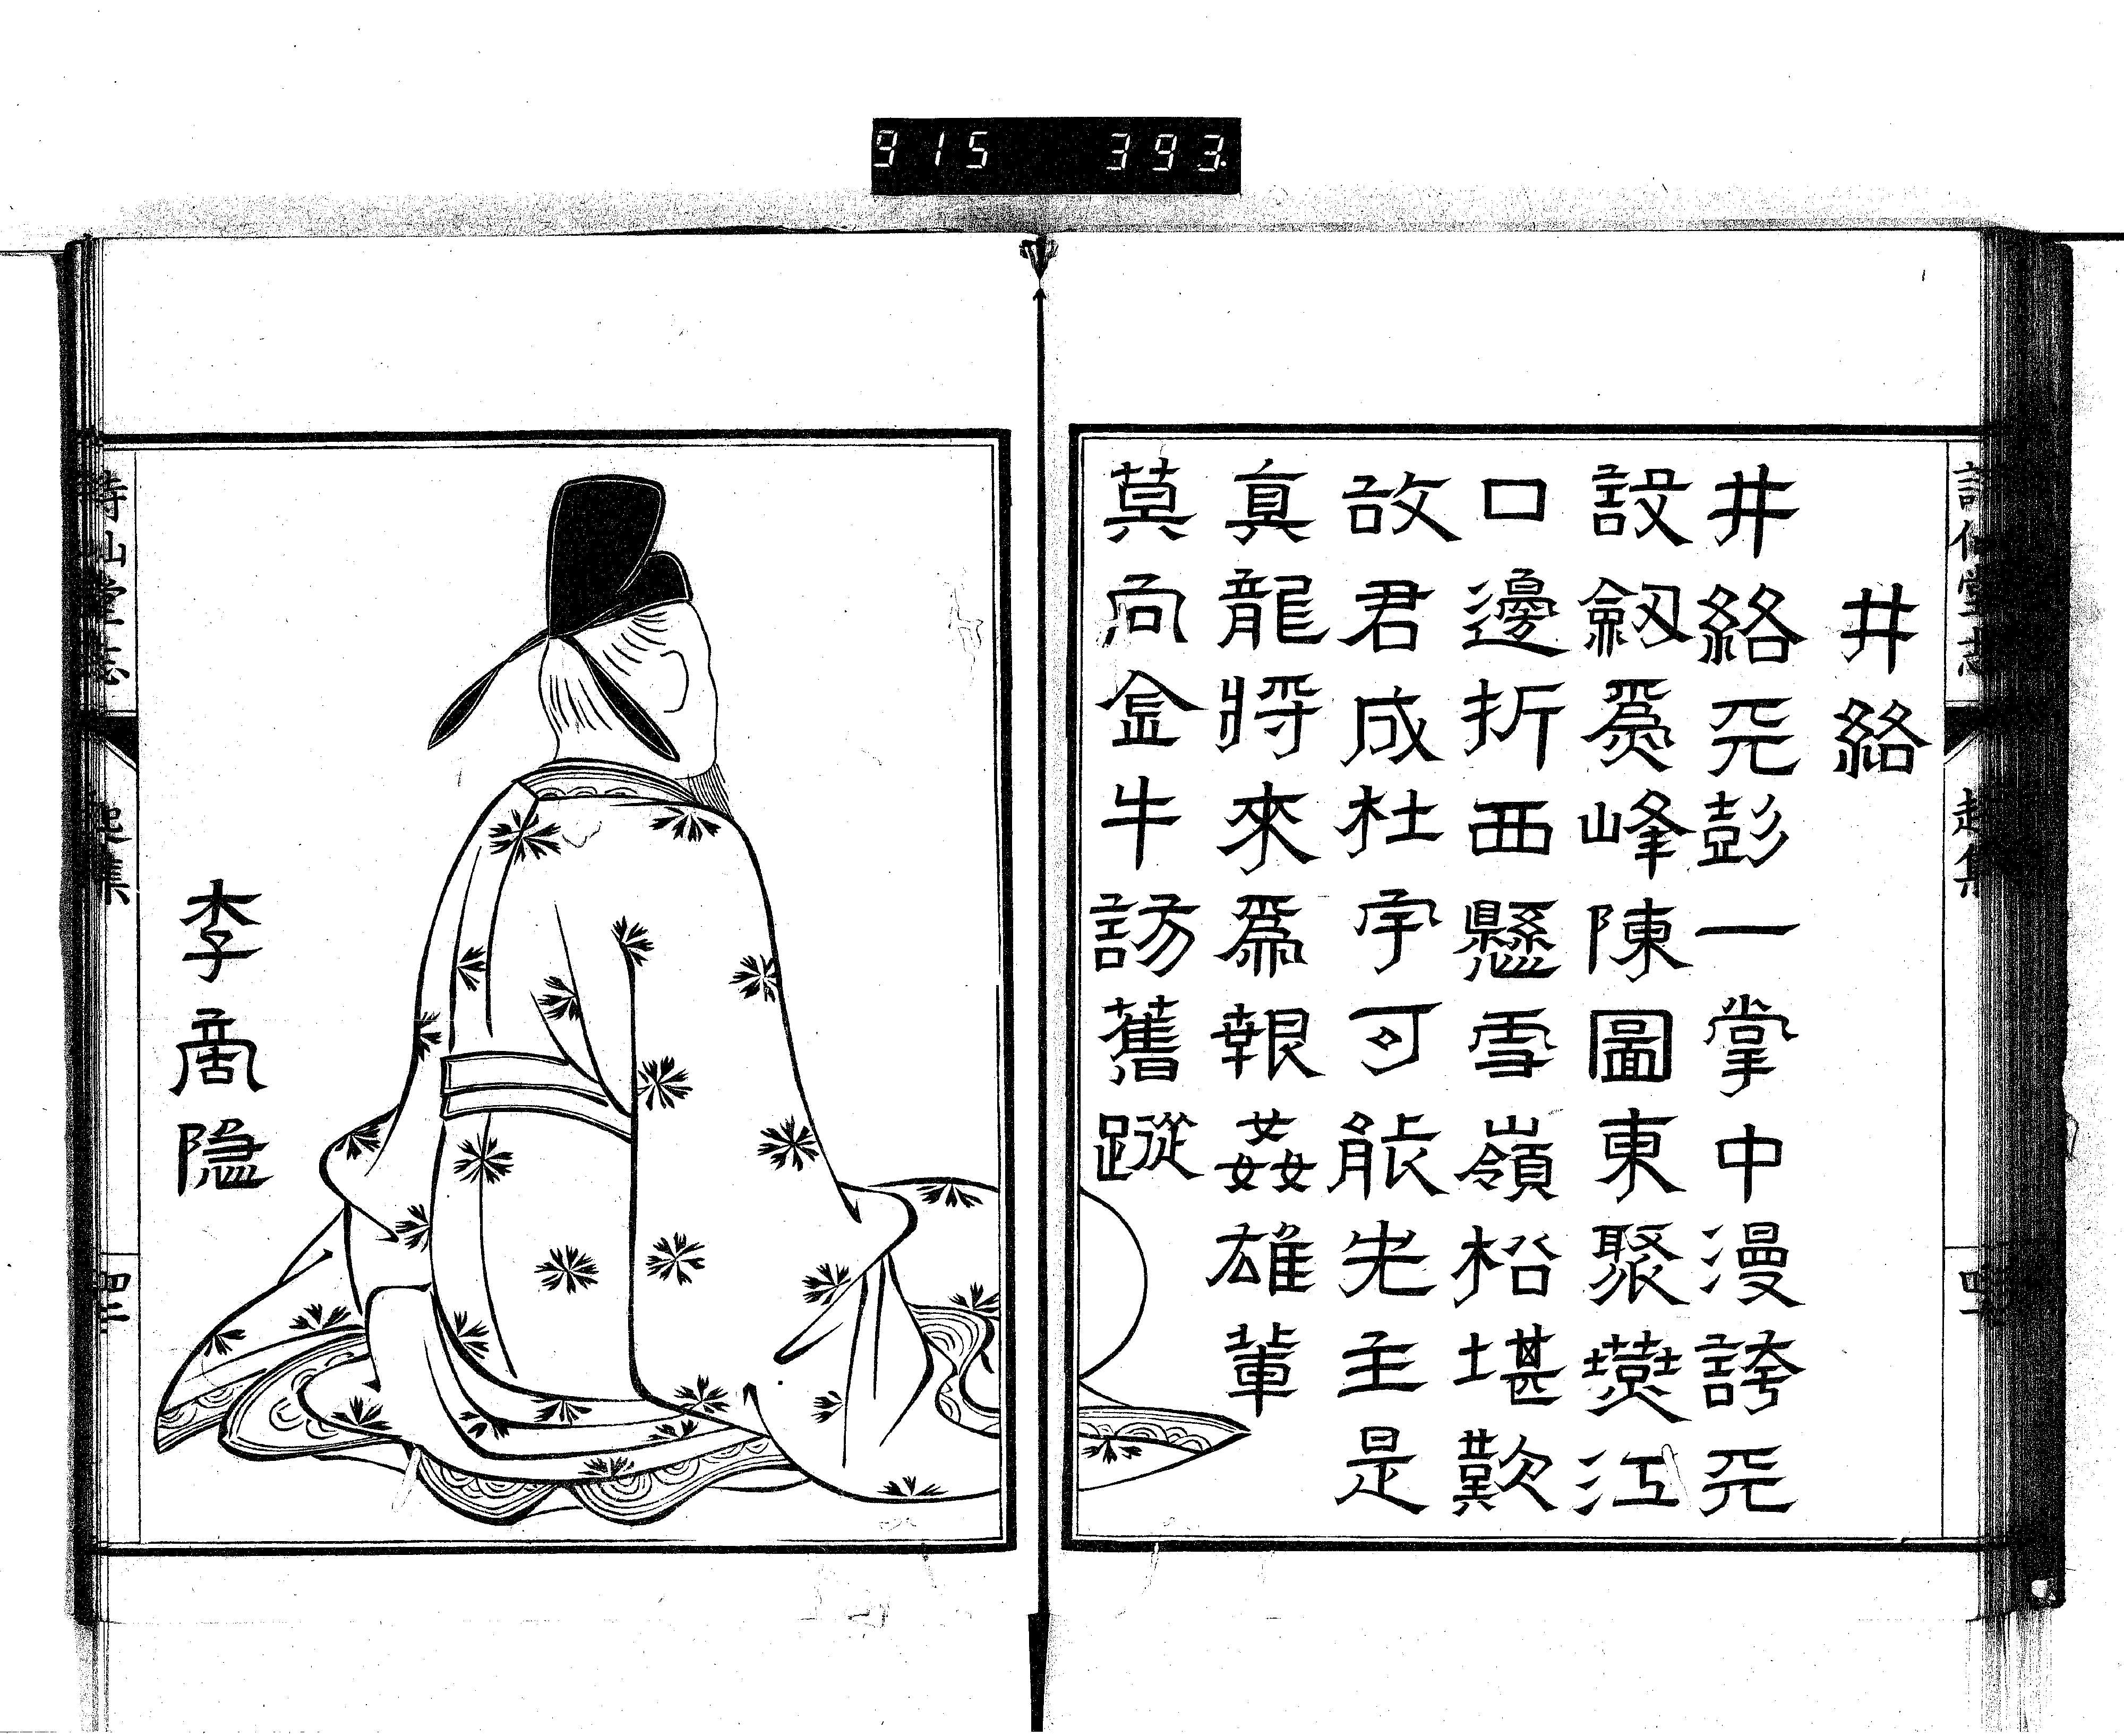 915 393.
詩仙堂志
起集
井絡
井絡天彭一掌中漫誇天
設劒爲峰陳圖東聚燕江
口邊折西懸雪嶺松堪歎
故君成杜宇可能先主是
真龍將來爲報姦雄輩
莫向金牛訪舊蹤
李商隐
詩仙堂志
起集